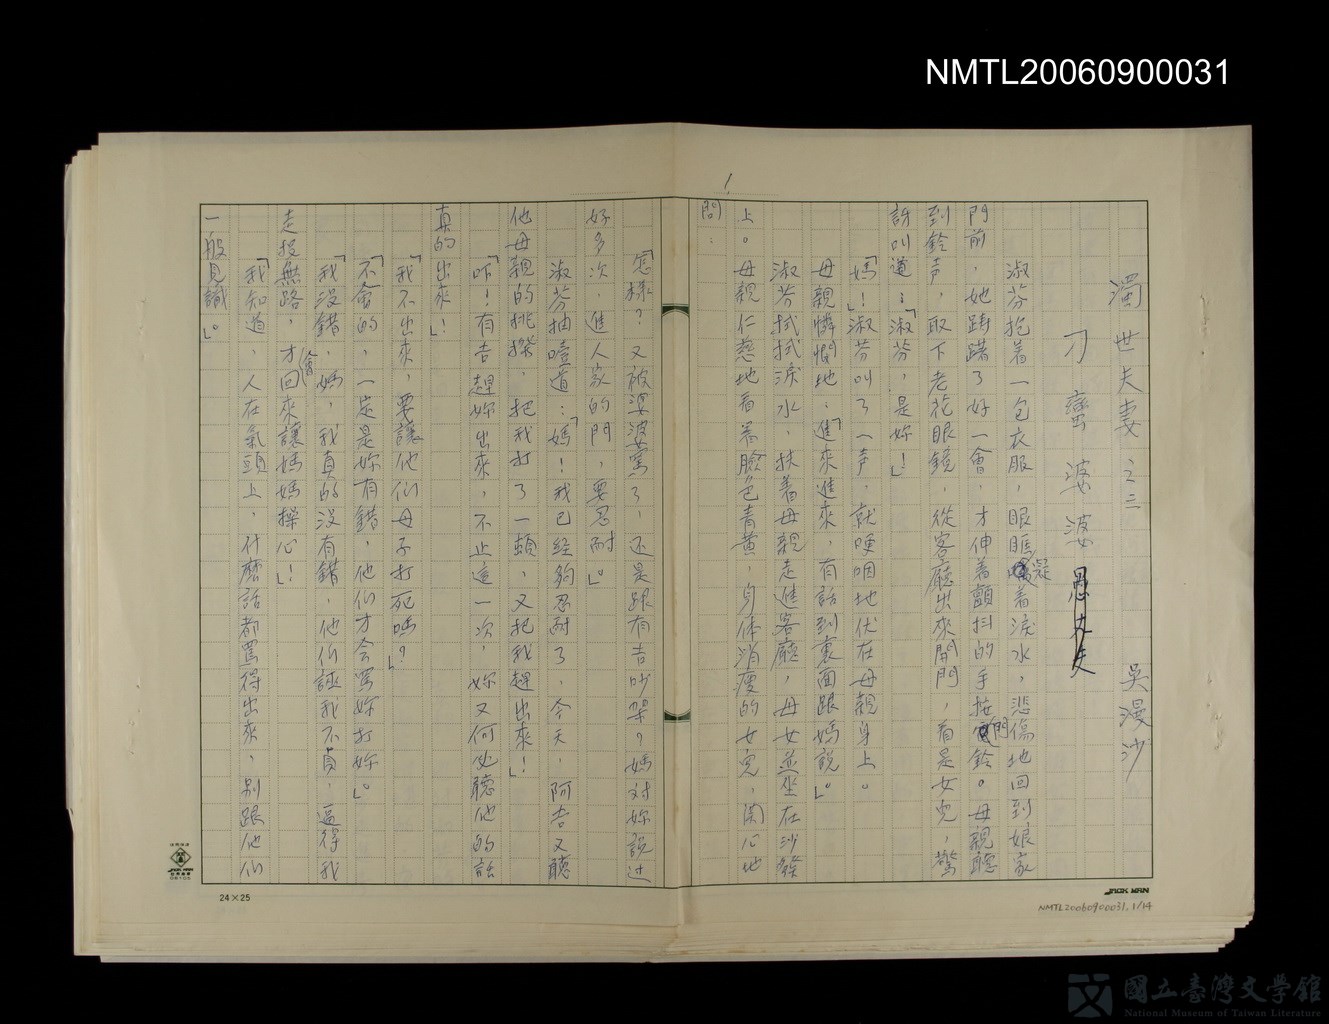 NMTL20060900031
1
濁世夫妻之三　吳漫沙
刁蠻婆婆愚丈夫
淑芬抱着一包衣服，眼眶凝着淚水，悲傷地回到娘家
門前，她躊躇了好一會，才伸着顫抖的手按門鈴。母親聽
到鈴声，取下老花眼鏡，從客廳出來開門，看是女兒，驚
訝叫道：「淑芬，是妳！」
「媽」！淑芬叫了一声，就哽咽地伏在母親身上。
母親憐憫地：「進來進來，有話到裏面跟媽說」。
淑芬拭拭淚水，扶着母親走進客廳，母女並坐在沙發
上。母親仁慈地看着臉色青黃，身体消瘦的女兒，関心地
問：
「怎樣？又被婆婆罵了，还是跟有吉吵架？媽对妳說过
好多次，進人家的門，要忍耐」。
淑芬抽噎道：「媽！我已経夠忍耐了，今天，阿吉又聽
他母親的挑撥，把我打了一頓，又把我趕出來！」
「吓！有吉趕妳出來，不止這一次，妳又何必聽他的話
真的出來」！
「我不出來，要讓他们母子打死嗎？」
「不會的，一定是妳有錯，他们才会罵妳打妳」。
「我没錯，媽，我真的没有錯，他们誣我不貞，逼得我
走投無路，才會回來讓媽媽操心」！
「我知道，人在氣頭上，什麼話都罵得出來，別跟他们
一般見識」。
24×25
JACK MAN
NMTL20060900031.1/14
國立臺灣文學館
National Museum of Taiwan Literature